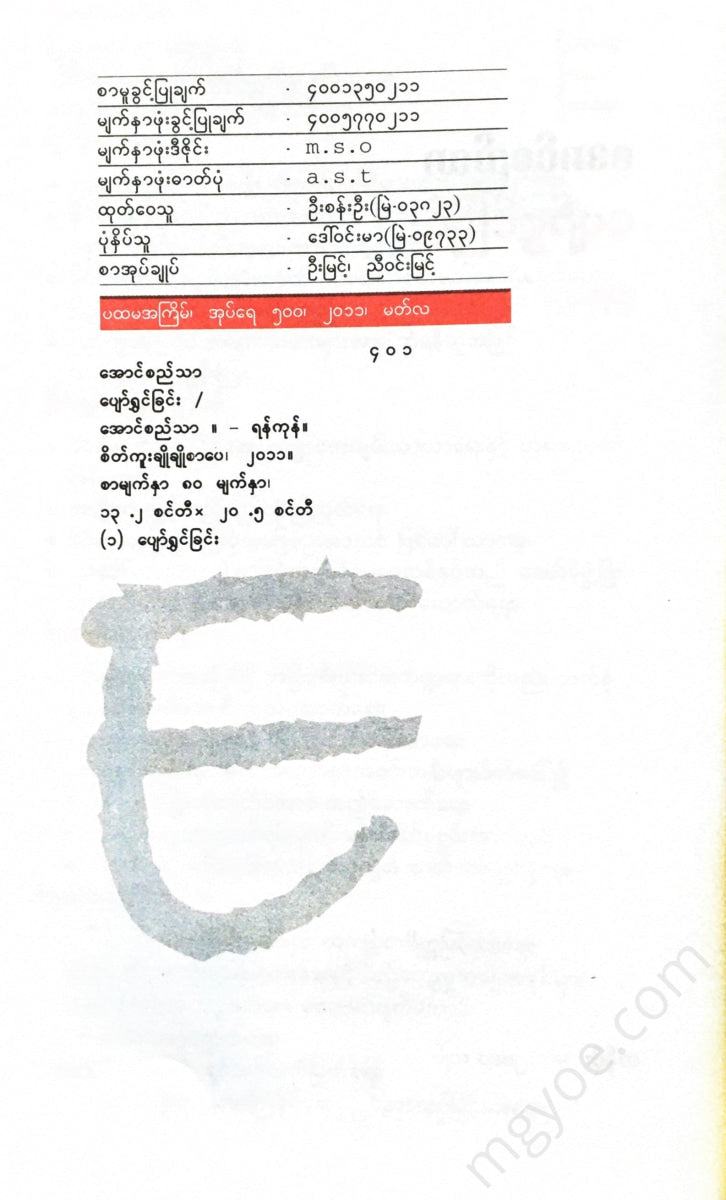 စာမူခွင့်ပြုချက် · ၄၀၀၁၃၅၀၂၁၁
မျက်နှာဖုံးခွင့်ပြုချက် · ၄၀၀၅၇၇၀၂၁၁
မျက်နှာဖုံးဒီဇိုင်း · m.s.o
မျက်နှာဖုံးဓာတ်ပုံ · a.s.t
ထုတ်ဝေသူ · ဦးစန်းဦး(မြဲ-၀၃၈၂၃)
ပုံနှိပ်သူ · ဒေါ်ဝင်းမာ(မြဲ-၀၉၇၃၃)
စာအုပ်ချုပ် · ဦးမြင့်၊ ညီဝင်းမြင့်
ပထမအကြိမ်၊ အုပ်ရေ ၅၀၀၊ ၂၀၁၁၊ မတ်လ
၄၀၁
အောင်စည်သာ
ပျော်ရွှင်ခြင်း /
အောင်စည်သာ ။ – ရန်ကုန်။
စိတ်ကူးချိုချိုစာပေ၊ ၂၀၁၁။
စာမျက်နှာ ၈၀ မျက်နှာ၊
၁၃ .၂ စင်တီ× ၂၀ .၅ စင်တီ
(၁) ပျော်ရွှင်ခြင်း
mgyoe.com